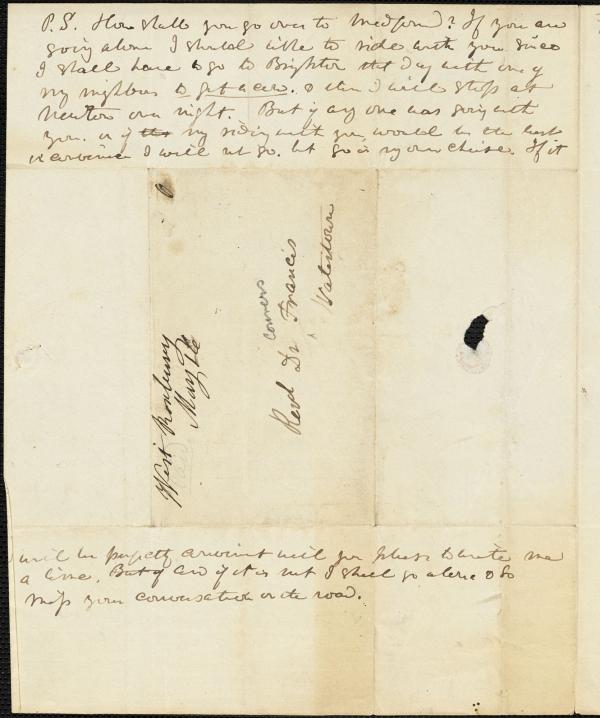 P.S. How shall you go over to Medford? If you are
going alone I should like to ride with you since
I shall have to go to Brighton that day with one of
my neighbors to get a cow. & then I will stop at
Newton over night. But if any one was going with
you. or if my riding with you, would in the least
I will not go. but go in my own Chaise. If it
West Roxbury
May 26
Revd Dr Francis
Convers
Watertown
will be perfectly convenient will you please to write me
a line. But if and if it is not I shall go alone & so
miss your conversation on the road.